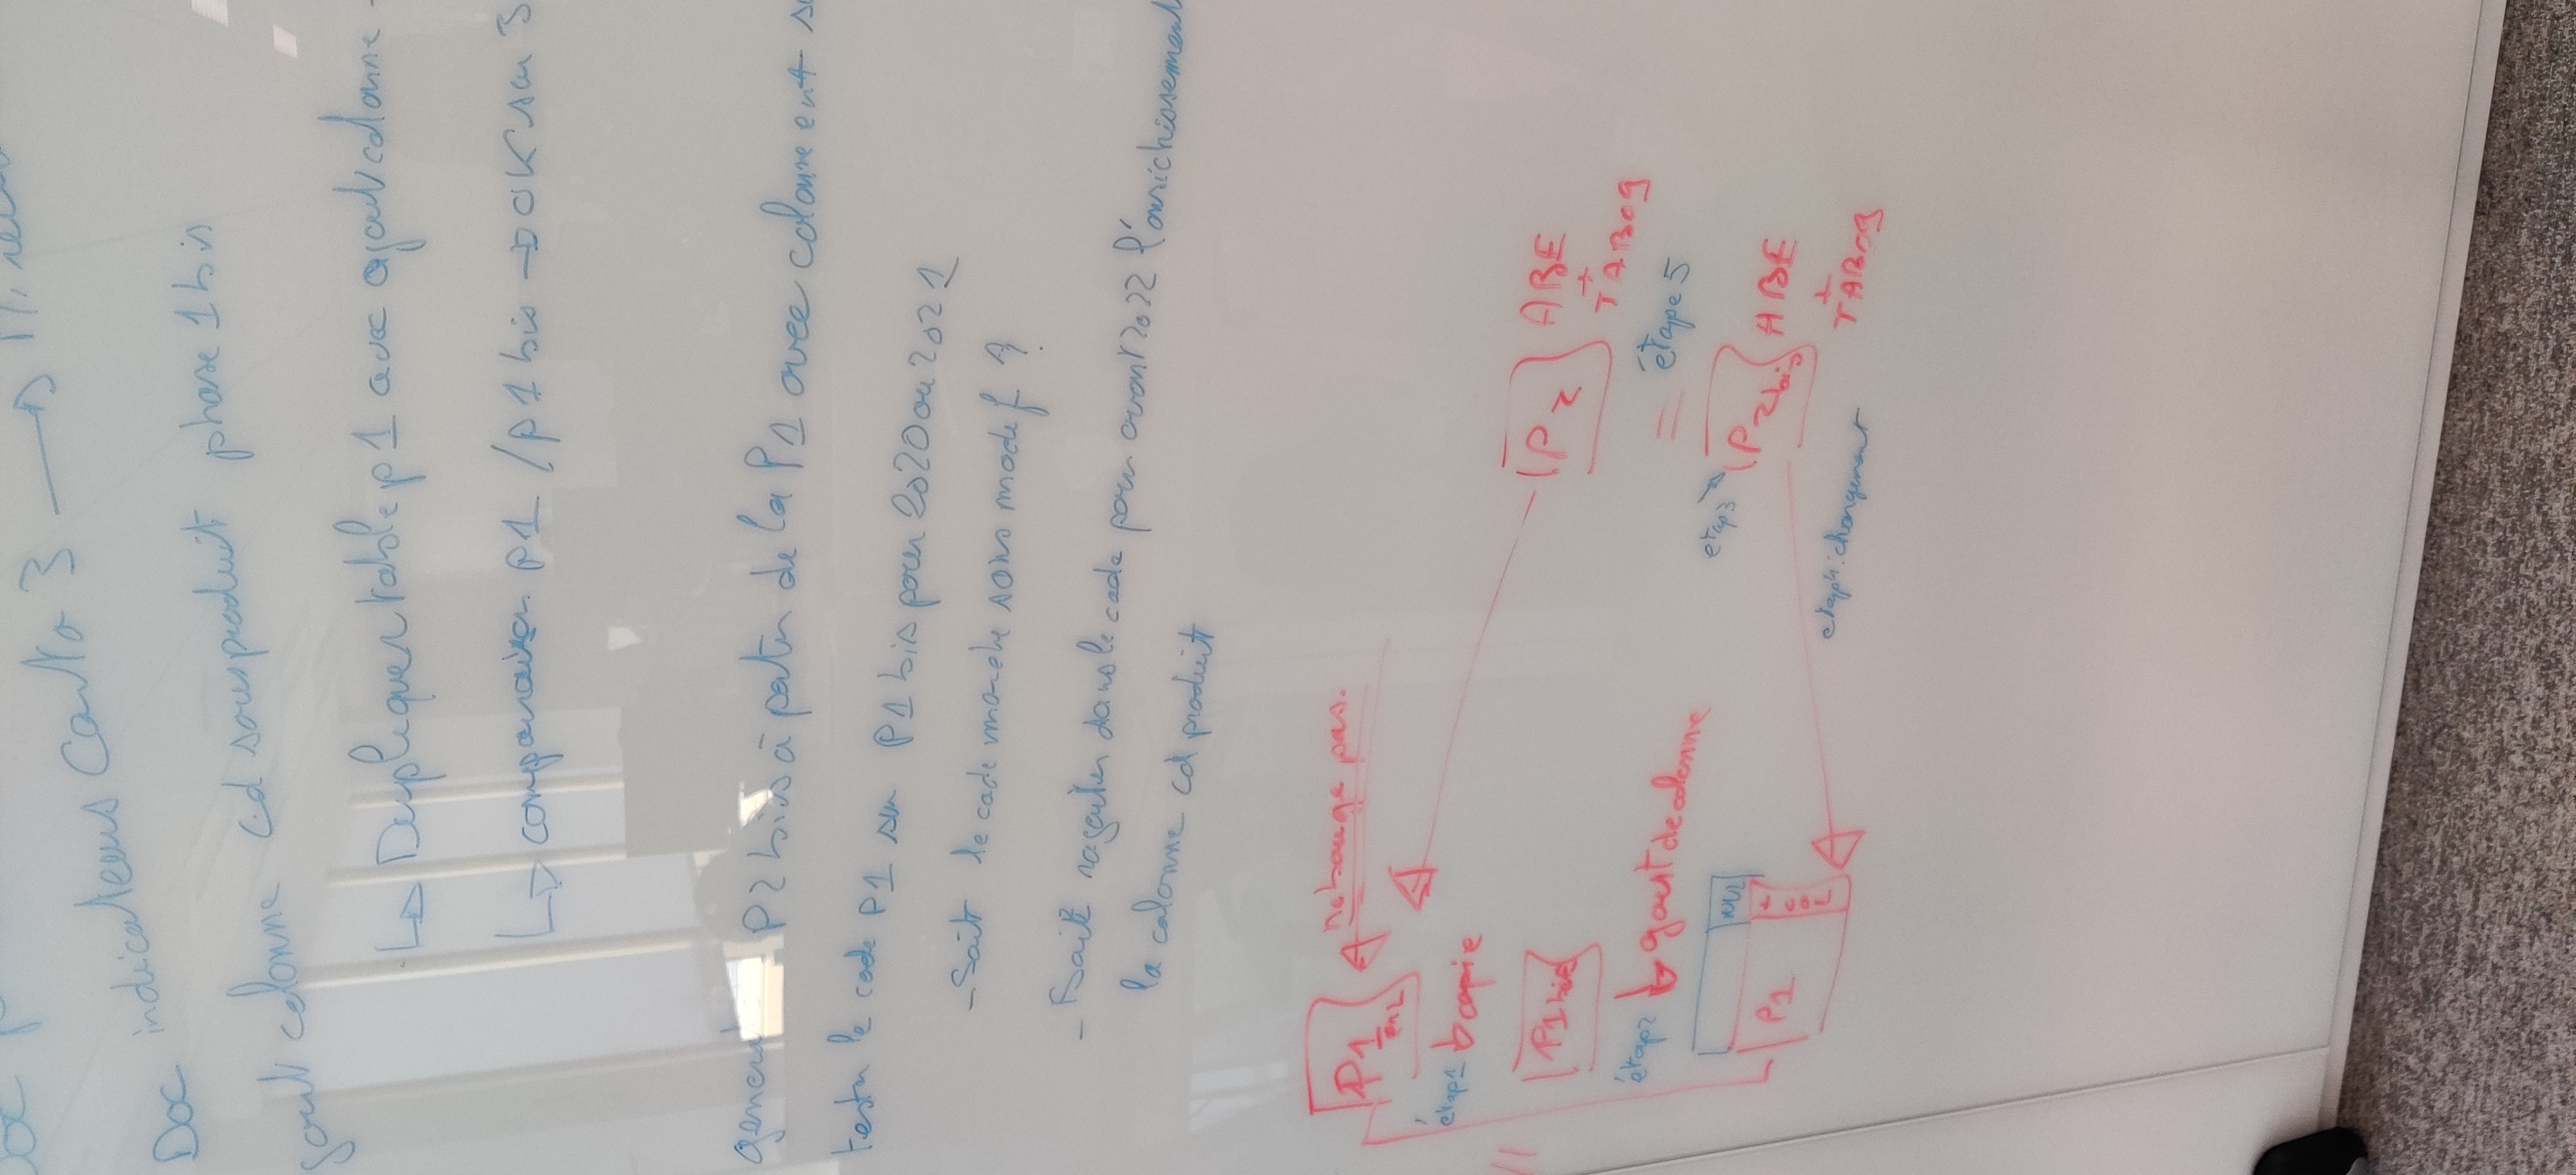 Doc
Doc indicateurs Carto 3 →
jout colonne cd sousproduit phase 1 bis
↳ Dupliquer table p1 avec ajout colonne
↳ comparaison p1 / p1 bis → OK sur 3
P2 bis à partir de la P1 avec colonne ent
tester le code P1 sur P1 bis pour 2020 ou 2021
- Soit le code marche sans modif ?
- Soit rajouter dans le code pour avant 2022 l'enrichissement
la colonne cd produit
P1
ne bouge pas.
étap1 copie
P1 bis
P2 ABE
+
TAB09
étap2 ajout de colonne
= étape 5
NUL
etap3
P1
+ COL
P2 bis ABE
+
TAB09
etap4 : changement